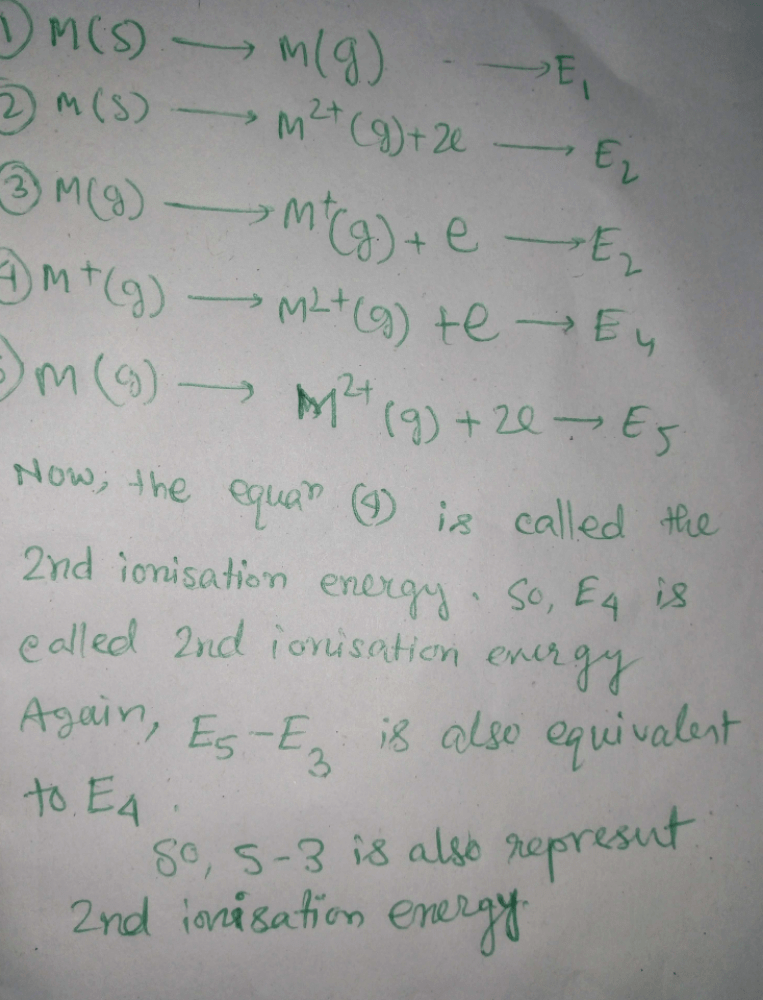 1) M(s) ⟶ M(g) ⟶ E₁
2) M(s) ⟶ M²⁺(g) + 2e ⟶ E₂
3) M(g) ⟶ M⁺(g) + e ⟶ E₂
4) M⁺(g) ⟶ M²⁺(g) + e ⟶ E₄
5) M(g) ⟶ M²⁺(g) + 2e ⟶ E₅
Now, the equaⁿ (4) is called the
2nd ionisation energy. So, E₄ is
called 2nd ionisation energy
Again, E₅-E₃ is also equivalent
to E₄.
So, 5-3 is also represent
2nd ionisation energy.